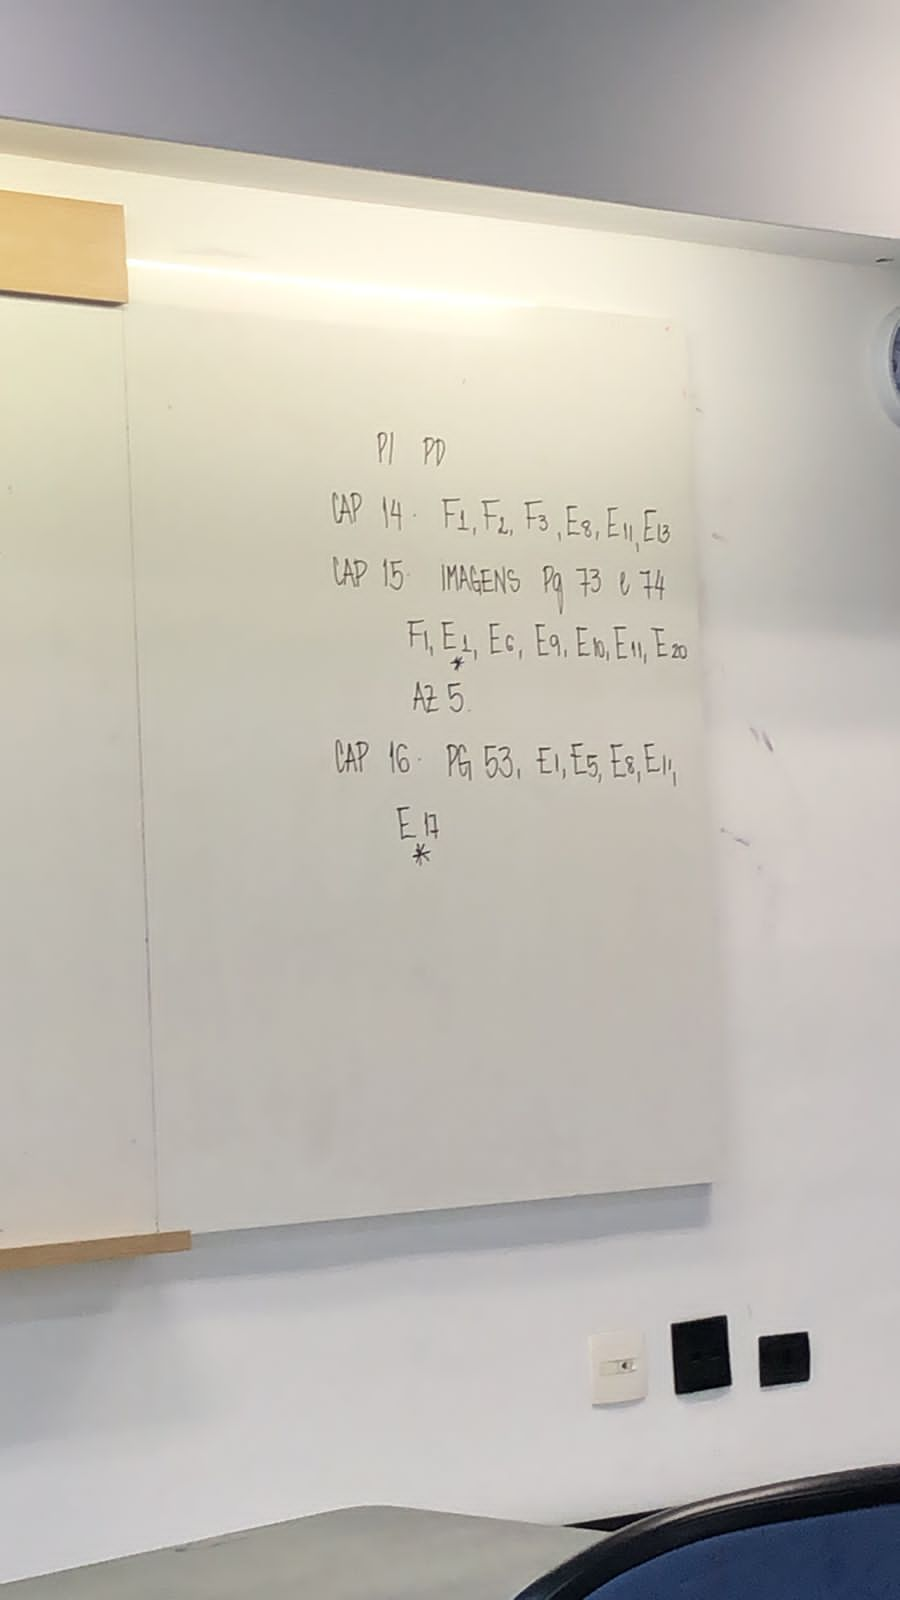 PI PD
CAP 14. F1, F2, F3, E8, E11, E13
CAP 15. IMAGENS Pg 73 e 74
F1, E1, E6, E9, E10, E11, E20
*
AZ 5.
CAP 16. PG 53, E1, E5, E8, E11,
E 17
*